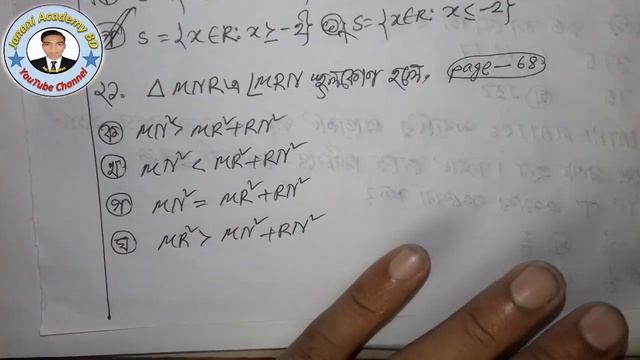 Janani Academy BD
YouTube Channel
S = {x∈R: x ≥ -2} (ঘ) S = {x∈R: x ≤ -2}
২১. △ MNR এ ∠MRN স্থূলকোণ হলে, page-68
(ক) MN² > MR² + RN²
(খ) MN² < MR² + RN²
(গ) MN² = MR² + RN²
(ঘ) MR² > MN² + RN²